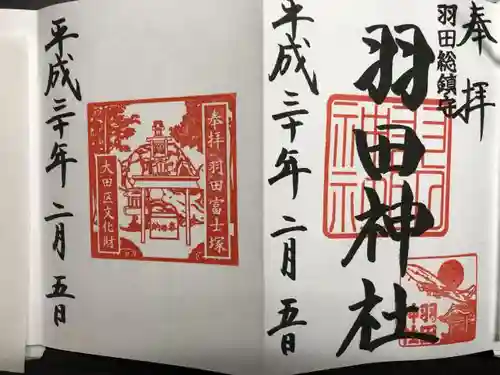 奉拝
羽田総鎮守
羽田神社
平成三十年二月五日
羽田神社
羽田神社
奉拝 羽田富士塚
大田区文化財
奉納
平成三十年二月五日